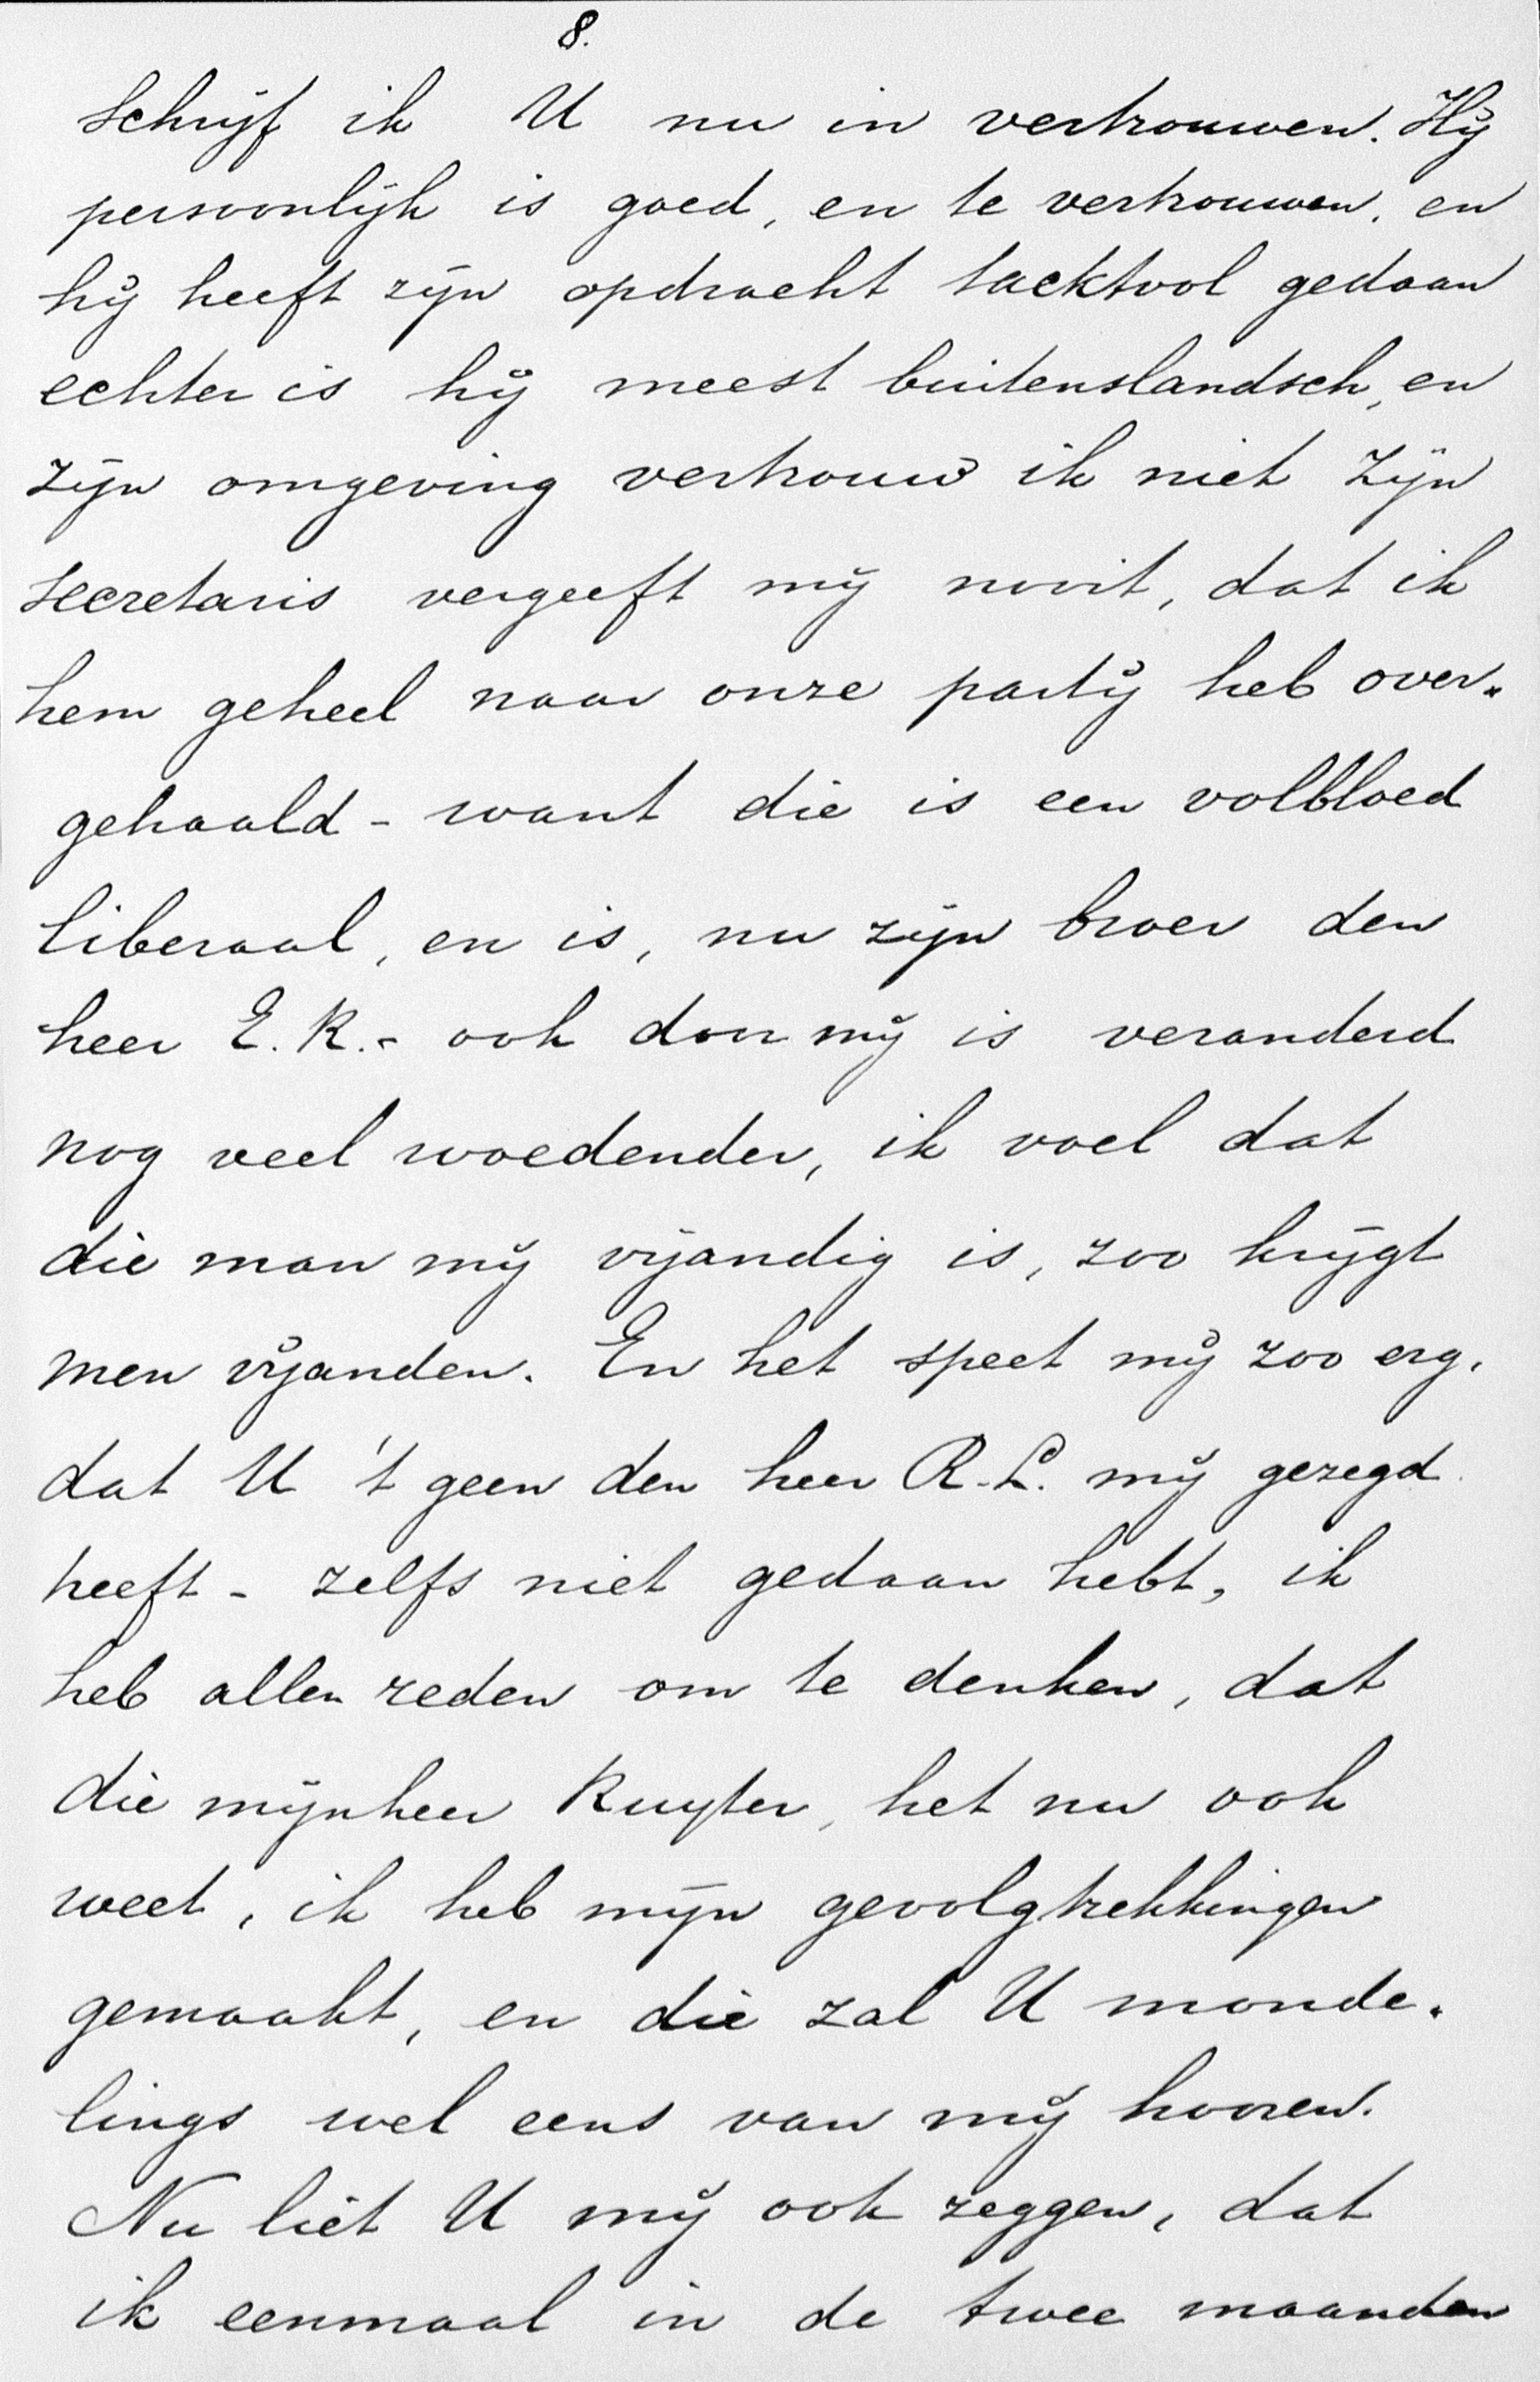 8.
schrijf ik U nu in vertrouwen. Hij
persoonlijk is goed, en te vertrouwen, en
hij heeft zijn opdracht tacktvol gedaan
echter is hij meest buitenslandsch, en
zijn omgeving vertrouw ik niet zijn
secretaris vergeeft mij nooit, dat ik
hem geheel naar onze partij heb over-
gehaald - want die is een volbloed
liberaal, en is, nu zijn broer den
heer E. K. - ook door mij is veranderd
nog veel woedender, ik voel dat
die man mij vijandig is, zoo krijgt
men vijanden. En het speet mij zoo erg,
dat U 't geen den heer R. L. mij gezegd
heeft - zelfs niet gedaan hebt, ik
heb allen reden om te denken, dat
die mijnheer Kuyter, het nu ook
weet, ik heb mijn gevolgtrekkingen
gemaakt, en die zal U monde-
lings wel eens van mij hooren.
Nu liet U mij ook zeggen, dat
ik eenmaal in de twee maanden